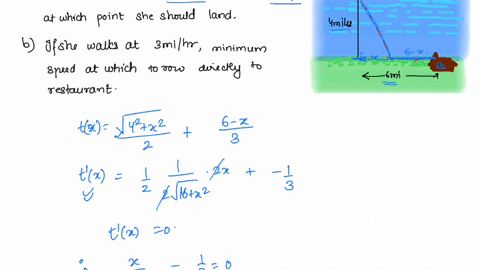 at which point she should land.
b) If she walks at 3mi/hr, minimum
speed at which to row directly to
restaurant.
4mi/hr
6-x
6mi
t(x) = √(4²+x²)/2 + (6-x)/3
t'(x) = 1/2 · 1/(2√(16+x²)) · 2x + -1/3
t'(x) = 0
x - 1 = 0